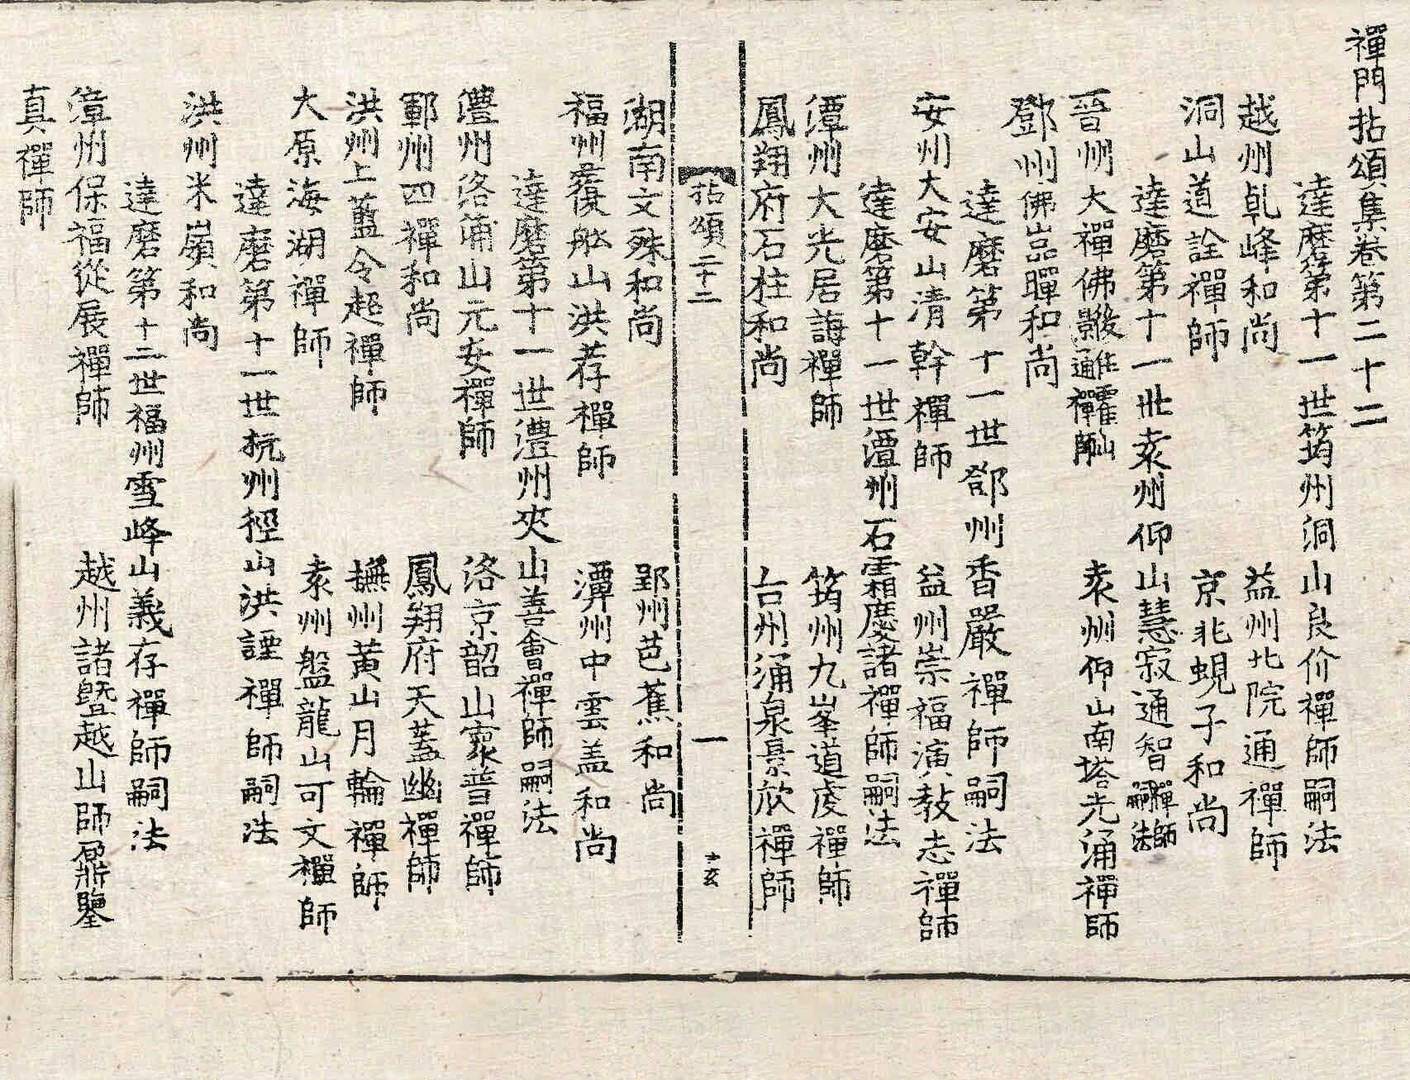 禪門拈頌集卷第二十二
達磨第十一世筠州洞山良价禪師嗣法
越州乹峰和尚 益州北院通禪師
洞山道詮禪師 京兆蜆子和尚
達磨第十一世袁州仰山慧寂通智禪師嗣法
晉州大禪佛景通禪師後住霍山 袁州仰山南塔光涌禪師
鄧州佛嵒暉和尚
達磨第十一世鄧州香嚴禪師嗣法
安州大安山清幹禪師 益州崇福演教志禪師
達磨第十一世潭州石霜慶諸禪師嗣法
潭州大光居誨禪師 筠州九峯道虔禪師
鳳翔府石柱和尚 台州涌泉景欣禪師
拈頌二十二 一 士玄
湖南文殊和尚 郢州芭蕉和尚
福州覆舡山洪荐禪師 潭州中雲盖和尚
達磨第十一世澧州夾山善會禪師嗣法
澧州洛浦山元安禪師 洛京韶山寰普禪師
鄆州四禪和尚 鳳翔府天蓋幽禪師
洪州上藍令超禪師 撫州黃山月輪禪師
大原海湖禪師 袁州盤龍山可文禪師
達磨第十一世杭州徑山洪諲禪師嗣法
洪州米嶺和尚
達磨第十二世福州雪峰山義存禪師嗣法
漳州保福從展禪師 越州諸曁越山師鼐鑒
真禪師